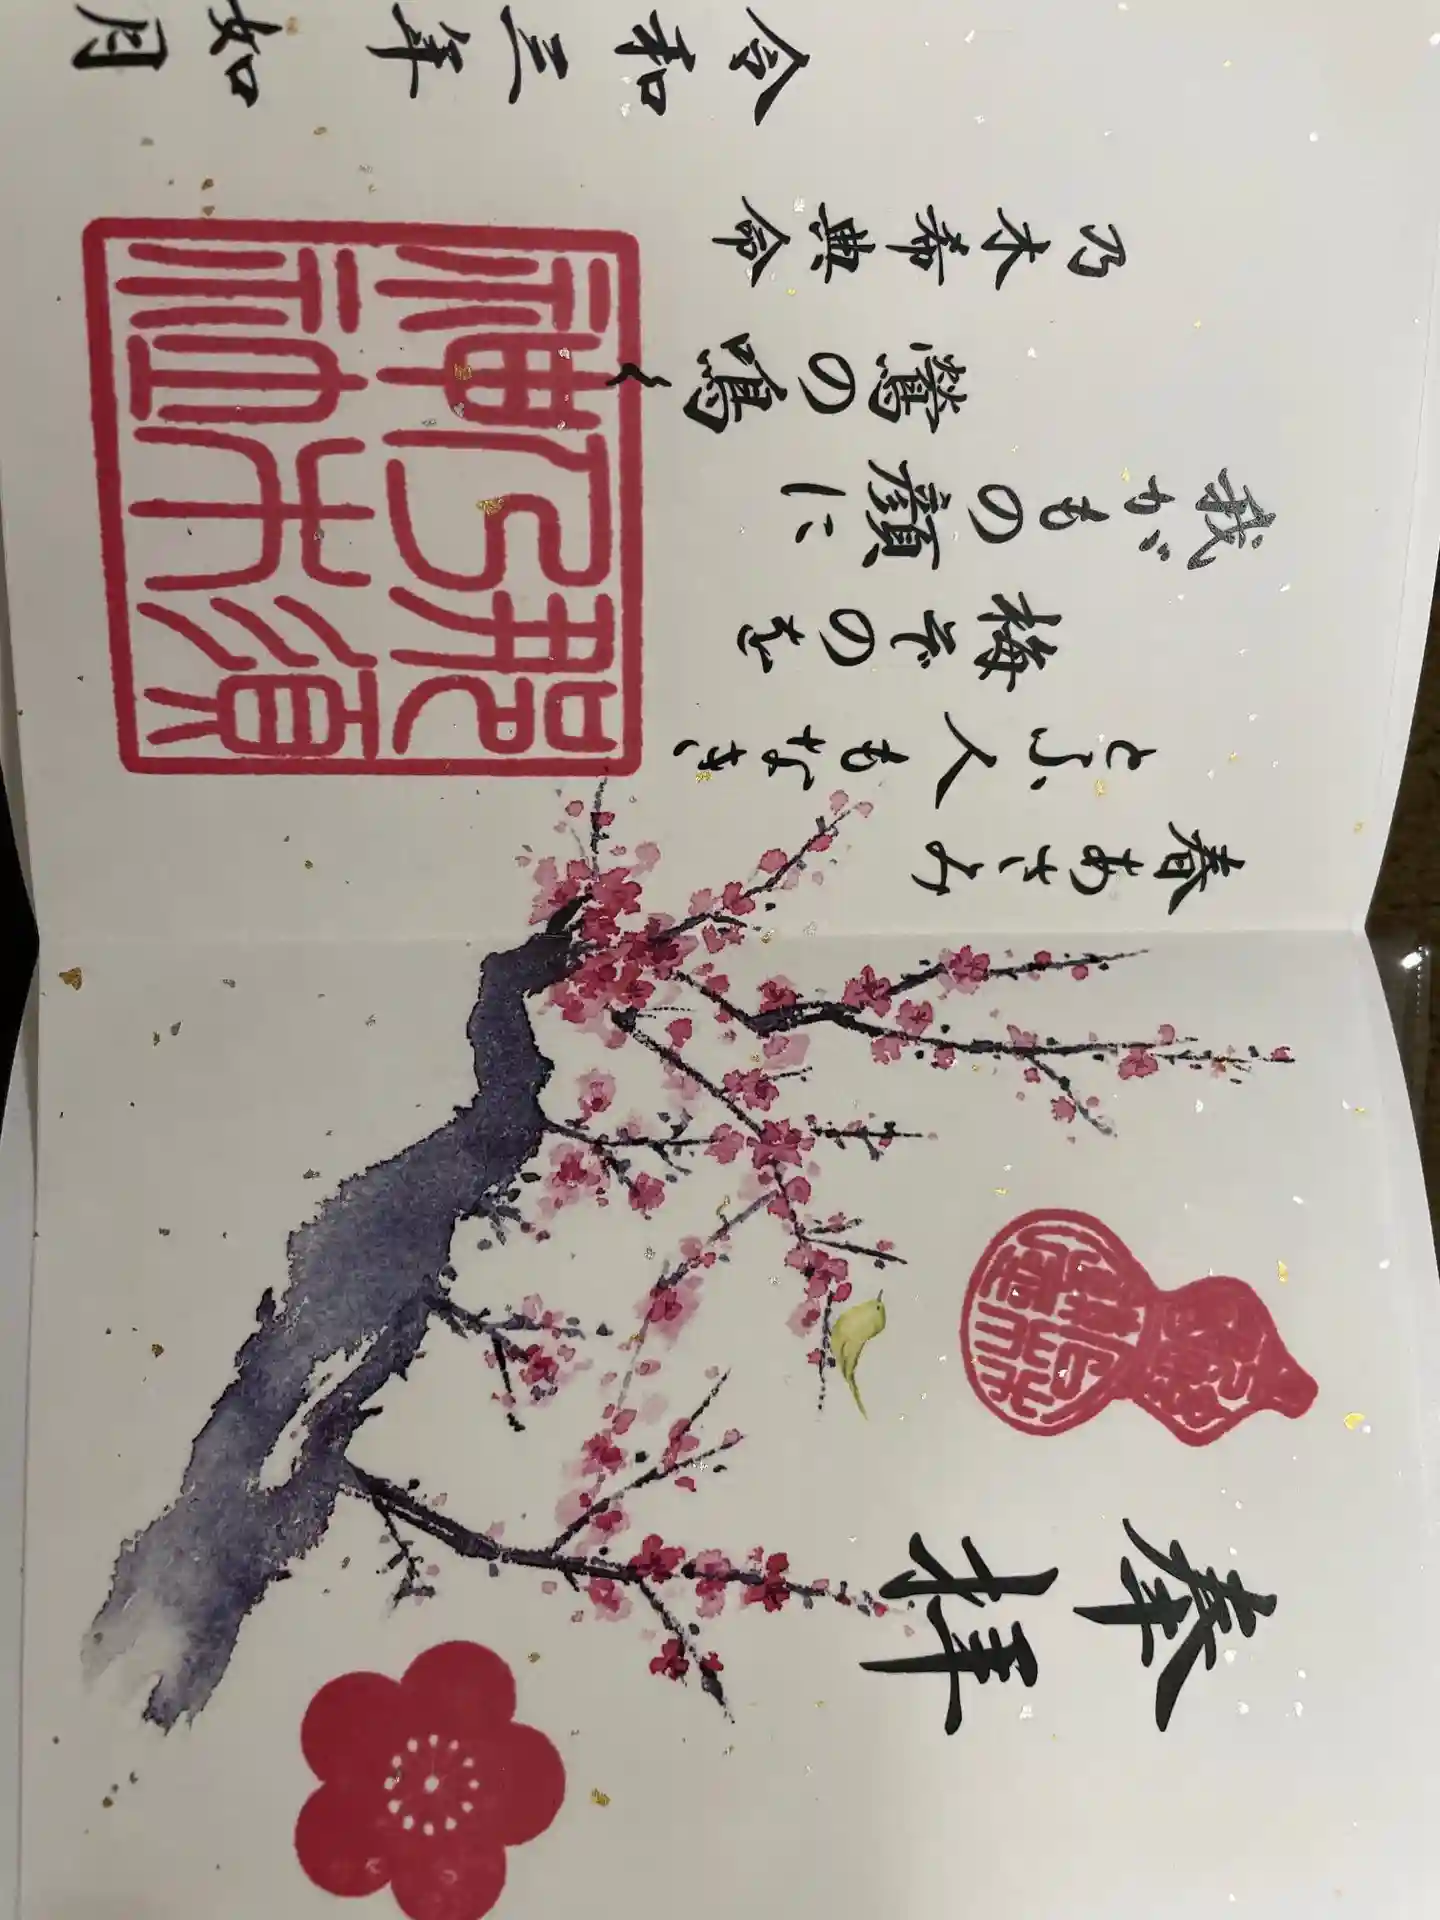 奉拝
春あさみ
とふ人もなき
梅ぞのを
我がもの顔に
鶯の鳴く
乃木希典命
那須
乃木
神社
令和三年如月